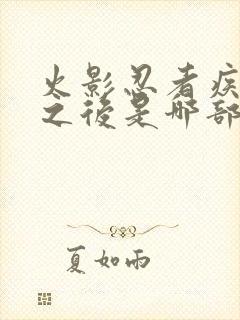 火影忍者疾
之後是哪部
夏如雨